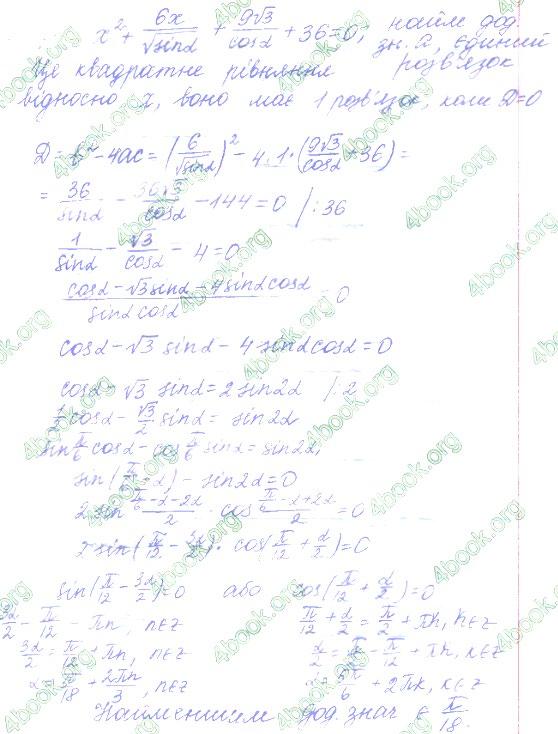 x² + 6x/√sinα + 9√3/cosα + 36 = 0, найм дод.
зн. α, єдиний
Це квадратне рівняння розв'язок
відносно x, воно має 1 розв'язок, коли D=0
D = b² - 4ac = (6/√sinα)² - 4·1·(9√3/cosα + 36) =
= 36/sinα - 36√3/cosα - 144 = 0 /:36
1/sinα - √3/cosα - 4 = 0
(cosα - √3 sinα - 4sinα cosα)/(sinα cosα) = 0
cosα - √3 sinα - 4 sinα cosα = 0
cosα - √3 sinα = 2 sin2α /:2
1/2 cosα - √3/2 sinα = sin2α
sin π/6 cosα - cos π/6 sinα = sin2α,
sin(π/6 - α) - sin2α = 0
2 sin (π/6 - α - 2α)/2 · cos (π/6 - α + 2α)/2 = 0
2 sin(π/12 - 3α/2) · cos(π/12 + α/2) = 0
sin(π/12 - 3α/2) = 0 або cos(π/12 + α/2) = 0
3α/2 - π/12 - πn, n∈z π/12 + α/2 = π/2 + πk, k∈z
3α/2 = π/12 + πn, n∈z α/2 = π/2 - π/12 + πk, k∈z
α = π/18 + 2πn/3, n∈z α = 5π/6 + 2πk, k∈z
Найменшим дод. знач є π/18.
4book.org